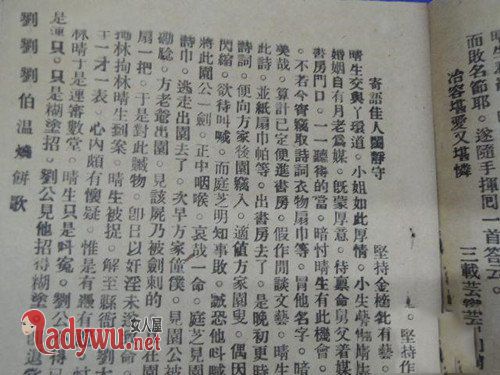 而敗名節耶。遂隨手揮囘一首答
冶容堪愛又堪憐
三載芸
。堅持作
堅持金 牝有藝。
寄語佳人獨靜守
晴生交與丫環道。小姐如此厚情。小生
婚姻自有月老為媒。旣蒙厚意。待禀命舅父着媒
書房門口。一一聽得的當。暗忖晴生有此機會。
。不若今宵竊取詩詞衣物扇巾等。冒他名字。暗
美哉。算計已定便進書房。假作閒談文藝。晴生
此詩。並紙扇巾帕等。出書房去了。是晚初更時
詩詞。便向方家後園竄入。適值方家園叟。偶因
閃縮。欲待叫喊。而庭芝明知事敗。誠恐他叫喊
將此園公一劍。正中咽喉。哀哉一命。庭芝見園
詩巾。逃走出園去了。次早方家僮僕。見園公被
勘騐。方老爺出園。見該屍乃被劍刺的。在園
扇一把。于是對此贓物。卽日以奸淫未遂 命
拗林拘林晴生到案。晴生被捉。解至縣衙
王一才一表。心內頗有懷疑。惟是有憑有
林晴于是運審數堂。晴生只是叫寃。劉公
是運只。只是糊塗招。劉公見他招得糊塗。
劉劉劉伯温燒餅歌
女人屋
Ladywu.com
ladywu.